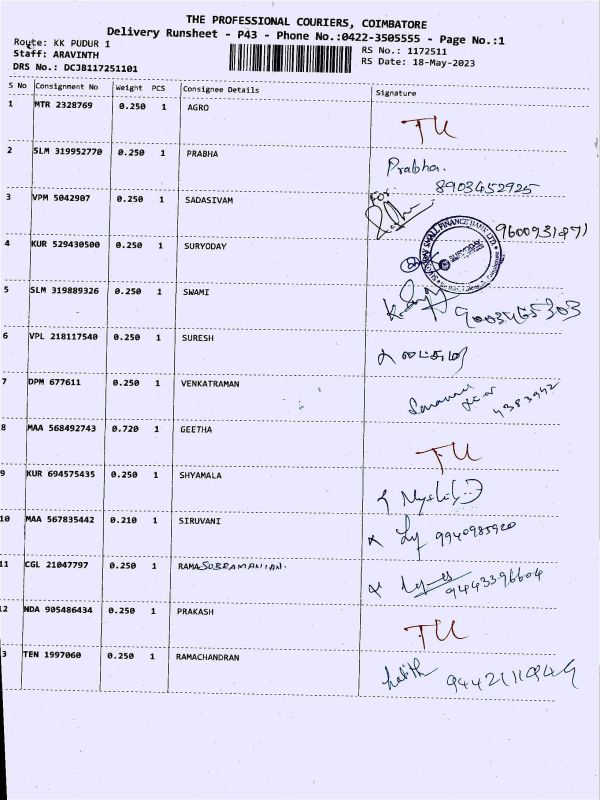 THE PROFESSIONAL COURIERS, COIMBATORE
Delivery Runsheet - P43 - Phone No.:0422-3505555 - Page No.:1
Route: KK PUDUR 1
Staff: ARAVINTH
DRS No.: DCJB117251101
RS No.: 1172511
RS Date: 18-May-2023
S No Consignment No Weight PCS Consignee Details Signature
1 MTR 2328769 0.250 1 AGRO TU
2 SLM 319952770 0.250 1 PRABHA Prabha.
8903452925
3 VPM 5042907 0.250 1 SADASIVAM For
4 KUR 529430500 0.250 1 SURYODAY
5 SLM 319889326 0.250 1 SWAMI
6 VPL 218117540 0.250 1 SURESH
7 DPM 677611 0.250 1 VENKATRAMAN
8 MAA 568492743 0.720 1 GEETHA TU
9 KUR 694575435 0.250 1 SHYAMALA
10 MAA 567835442 0.210 1 SIRUVANI 9940985920
11 CGL 21047797 0.250 1 RAMASUBRAMANIAN. 9443396604
12 NDA 905486434 0.250 1 PRAKASH TU
3 TEN 1997060 0.250 1 RAMACHANDRAN Lalith